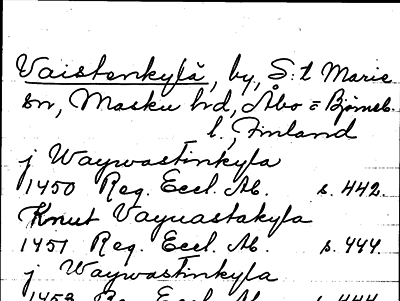 Vaistenkylä, by, S:t Marie
sn, Masku hd, Åbo = Björneb.
l., Finland
j Waywastinkyla
1450 Reg. Eccl. Ab. s. 442.
Knut Vayuastakyla
1451 Reg. Eccl. Ab. s. 444.
j Waywastinkyla
1453 Reg. Eccl. Ab. s. 444